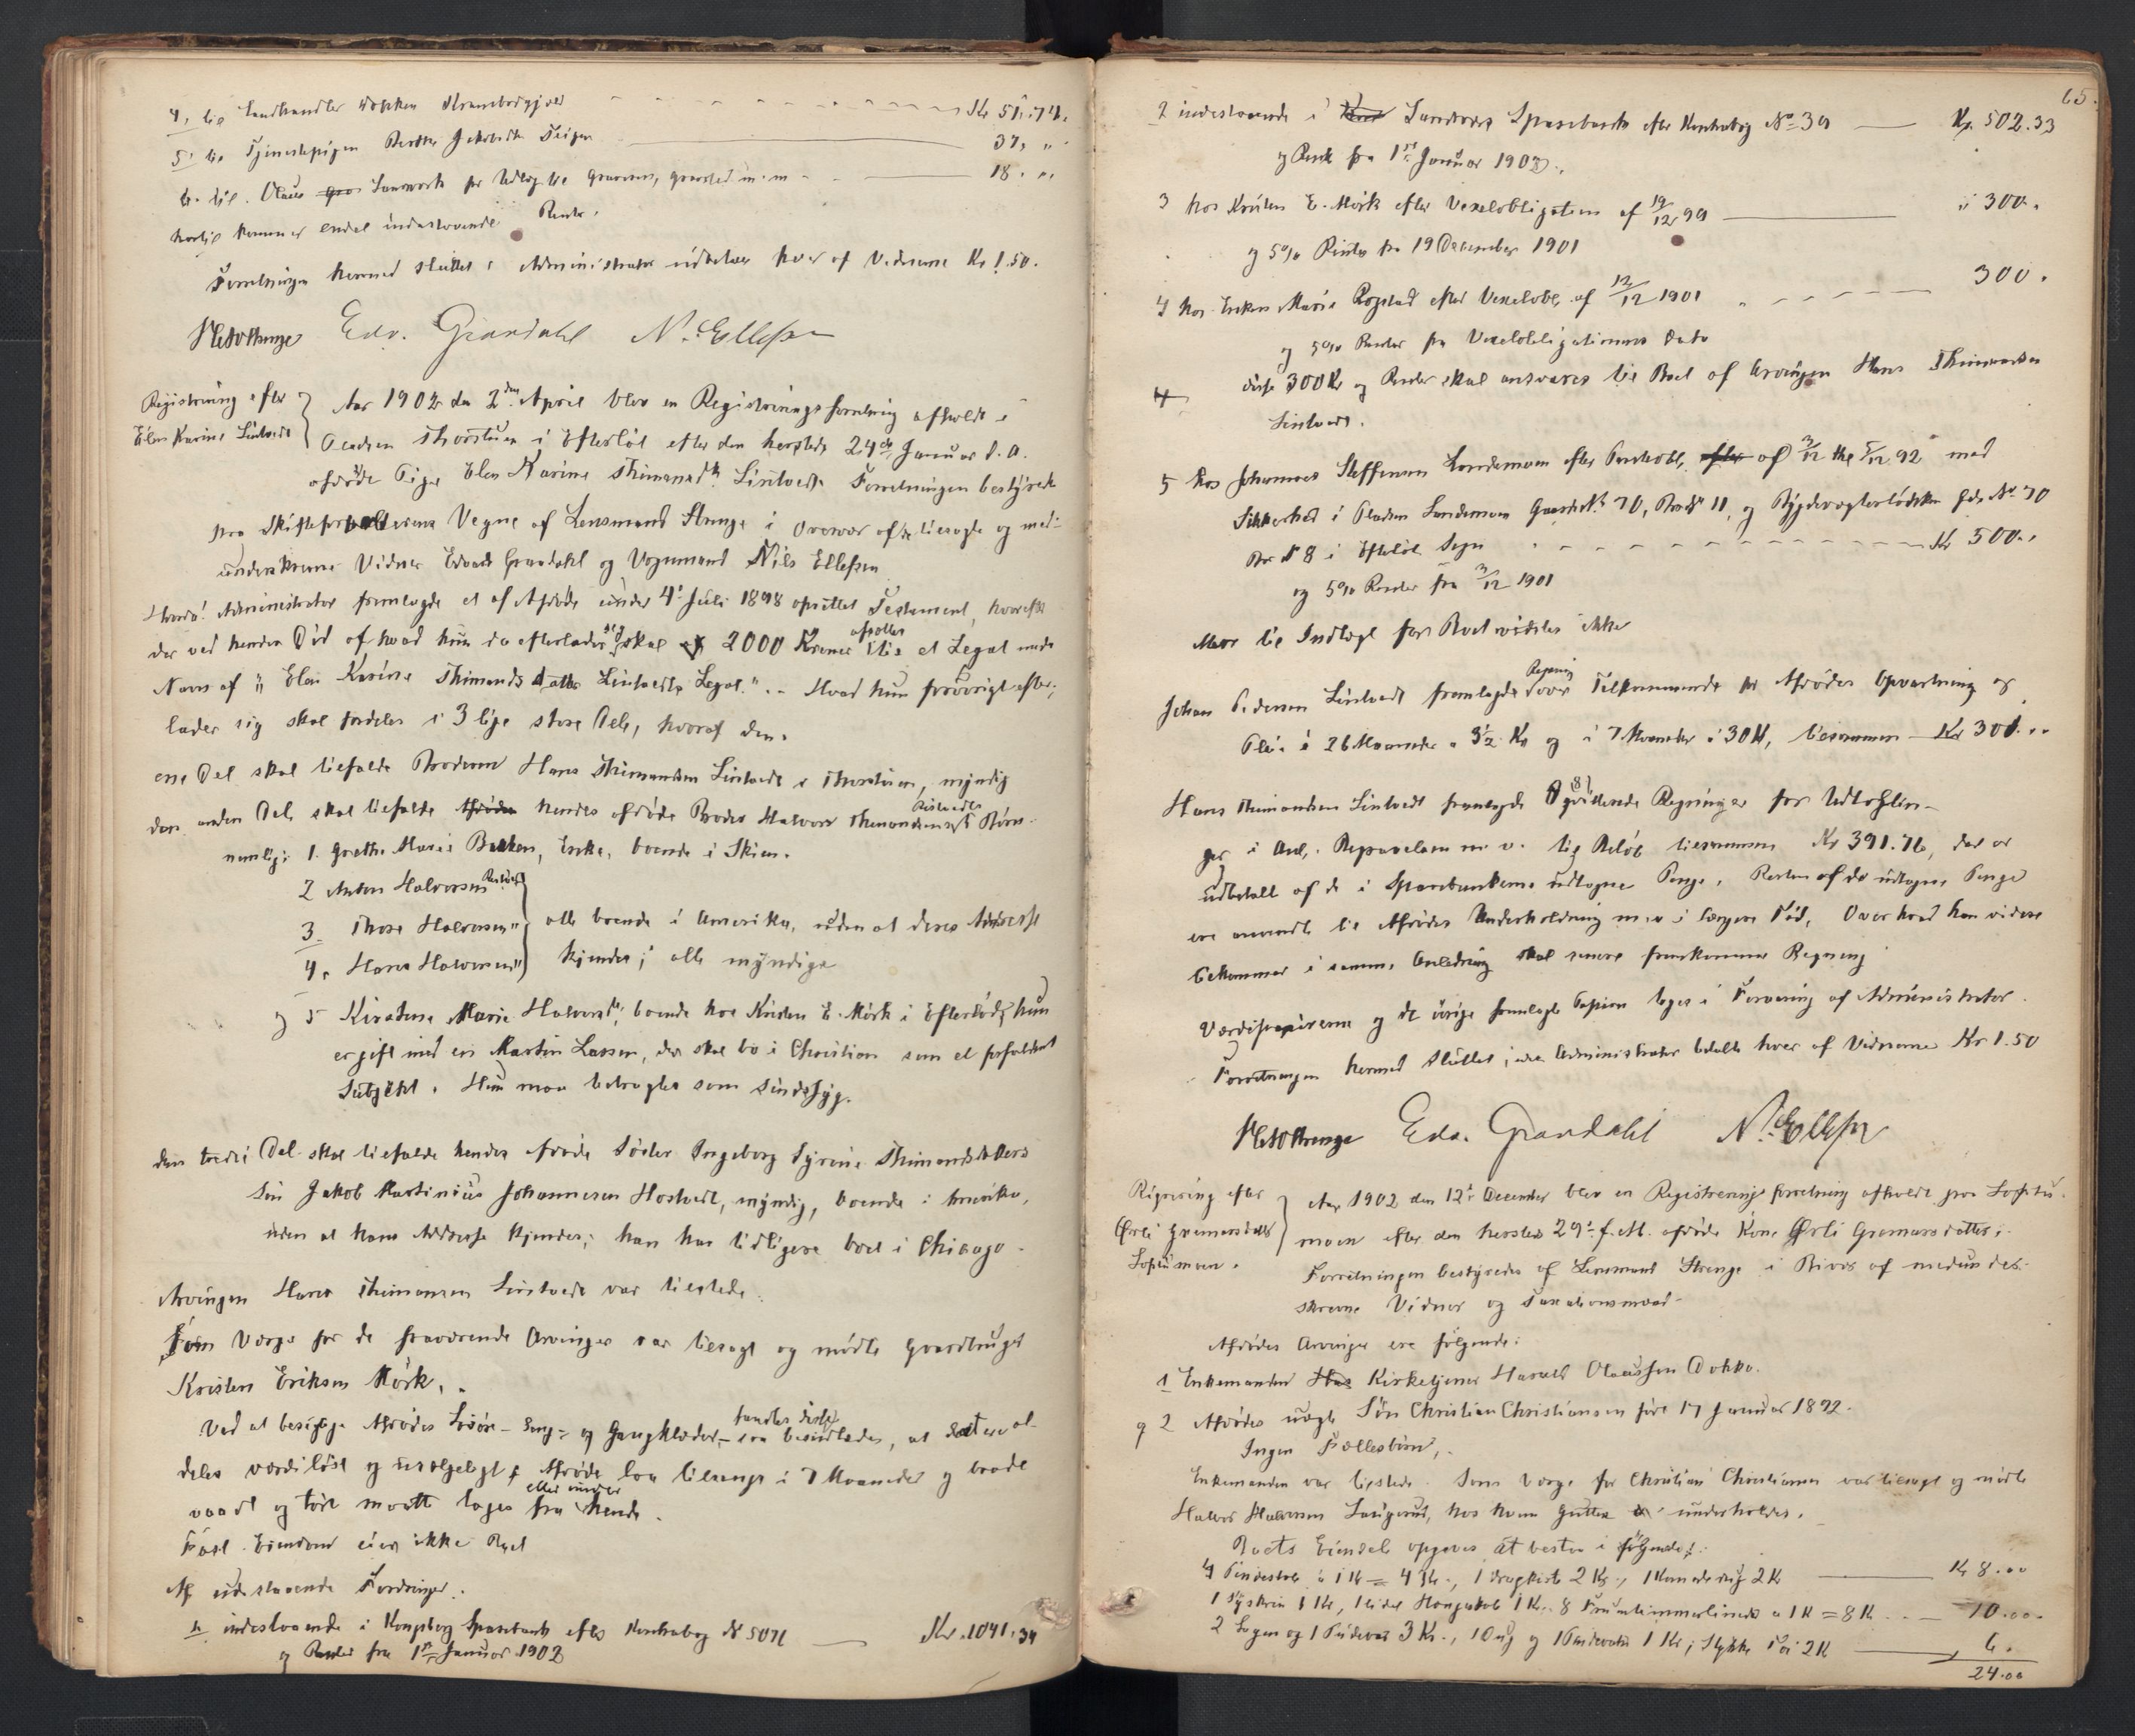 4, til Landhandler Kramboðgjæld Kr 51.74.
5. til Tjenestepigen Berthe Jakobsdtr Teigen 37, "
6. til Olaus Landverk for Udlæg til Gravøl, gravsted m.m. 18. "
hertil kommer endel indestaaende Renter.
Forretningen hermed sluttet; Administrator udbetaler hver af Vidnerne Kr 1.50.
Edv. Grandahl N. Ellefsen
Registrering efter
Elen Karine Lintvedt
Aar 1902 den 2den April blev en Registreringsforretning afholdt i
Pladsen Thorstuen i Efterløt efter den hersteds 24de Januar d. A.
afdøde Pige Elen Karine Thimandsdtr Lintvedt. Forretningen bestyredes
paa Skifteforvalterens Vegne af Lensmand Strenge i Overvær af de tilsagte og med-
underskrevne Vidner Edvard Grandahl og Vognmand Nils Ellefsen
Administrator fremlagde et af Afdøde under 4de Juli 1898 oprettet Testament, hvorefter
der ved hendes Død af hvad hun da efterlader sig skal 2000 Kroner afsættes til et Legat under
Navn af "Elen Karine Thimandsdatter Lintvedts Legat". - Hvad hun forøvrigt efter-
lader sig skal fordeles i 3 lige store Dele, hvoraf den
ene Del skal tilfalde Broderen Hans Thimandsen Lintvedt i Thorstuen, myndig
den anden Del skal tilfalde hendes afdøde Broder Halvor Thimandsens Børn
nemlig: 1. Grethe Marie Bakken, Enke, boende i Skien.
2 Anton Halvorsen
3. Thore Halvorsen "
4. Hans Halvorsen "
alle boende i Amerika, uden at deres Adresse
kjendes; alle myndige
og 5 Kirstine Marie Halvorsdtr, boende hos Kristen E. Mørk i Efterløt; hun
er gift med en Martin Larsen, der skal bo i Christian som et forfaldent
Subjekt. Hun maa betragtes som Sindssyg.
den tredie Del skal tilfalde hendes afdøde Søster Ingeborg Syrine Thimandsdatters
Søn Jakob Martinius Johannesen Hostvedt, myndig, boende i Amerika,
uden at hans Addresse kjendes; han har tidligere boet i Chicago.
Arvingen Hans Thimansen Lintvedt var tilstede.
Som Værge for de fraværende Arvinger var tilsagt og mødte Gaardbruger
Kristen Eriksen Mørk.
Ved at besigtige Afdødes Løsøre - Seng- og Gangklæder, - fandtes disse, at være al-
deles værdiløst og usælgeligt; Afdøde laa tilsengs i 7 Maaneder og baade
vaadt og tørt maatte tages fra eller under hende.
Fast Eiendom eier ikke Boet
Af udestaaende Fordringer.
1. indestaaende i Kongsberg Sparebank efter Kontrabog No 5071 Kr. 1041.34
og Renter fra 1ste Januar 1902
65.
2 indestaaende i Sandsværs Sparebank efter Kontrabog No 39 Kr. 502.33
og Rente fra 1ste Januar 1902.
3 hos Kristen E. Mørk efter Vexelobligation af 19/12 99 " 300.
og 5% Renter fra 19 December 1901
4 hos Enken Maria Rogstad efter Vexelobl. af 12/12 1901 300.
og 5% Renter fra Vexelobligationens Dato
disse 300 Kr og Renter skal ansvares til Boet af Arvingen Hans Thimandsen
Lintvedt.
5 hos Johannes Steffensen Landemoen efter Pantobl. af 3/12 92 med
Sikkerhed i Pladsen Landemoen Gaards No 70, Brugs 11, og Gds No 70
Br No 8 i Efteløt Sogn Kr 500.
og 5% Renter fra 3/12 1901
Mere til Indtægt for Boet vidstes ikke
Johan Pedersen Lintvedt fremlagde Regning over Tilkommende for Afdødes Opvartning og
Pleie i 26 Maaneder a 3½ Kr og i 7 Maaneder a 30 Kr, tilsammen Kr 301.
Hans Thimandsen Lintvedt fremlagde 8 kvitterede Regninger for Udtællin-
ger i Anl. Reparation m. v. til Beløb tilsammen Kr 391.76, der er
udbetalt af de i Sparebankerne udtagne Penge. Resten af de udtagne Penge
ere anvendte til Afdødes Underholdning m.v. i længere Tid. Over hvad han videre
tilkommer i samme Anledning skal senere fremkomme Regning
Værdipapirerne og de øvrige fremlagte Papirer toges i Forvaring af Administrator.
Forretningen hermed sluttet; Administrator betalte hver af Vidnerne Kr 1.50
Edv. Grandahl N. Ellefsen
Registrering efter
Ørli Gremersdatter
Aar 1902 den 12te December blev en Registreringsforretning afholdt paa
moen efter den hersteds 29de f. M. afdøde Kone Ørli Gremersdatter.
Forretningen bestyredes af Lensmand Strenge i Biværs af medunder-
skrevne Vidner og Taxationsmænd.
Afdødes Arvinger ere følgende:
1 Enkemanden Kirketjener Harald Olaussen Dokka.
og 2 Afdødes uægte Søn Christian Christiansen født 17 Januar 1892.
Ingen Fællesbørn.
Enkemanden var tilstede. Som Værge for Christian Christiansen var tilsagt og mødte
Halvor Halvorsen Laugerud, hos hvem Gutten underholdes.
Boets Eiendele opgaves at bestaa i følgende:
4 Pindestole à 1 Kr = 4 Kr., 1 Dragkiste 2 Kr., 1 Komode 2 Kr Kr 8.00
1 Syskrin 1 Kr, 1 liden 1 Kr. 8 a 1 Kr = 8 Kr 10.00.
2 Senge og 1 3 Kr., 1 Ovn og 1 1 Kr; Stykke Tøi 2 Kr 6.
24.00